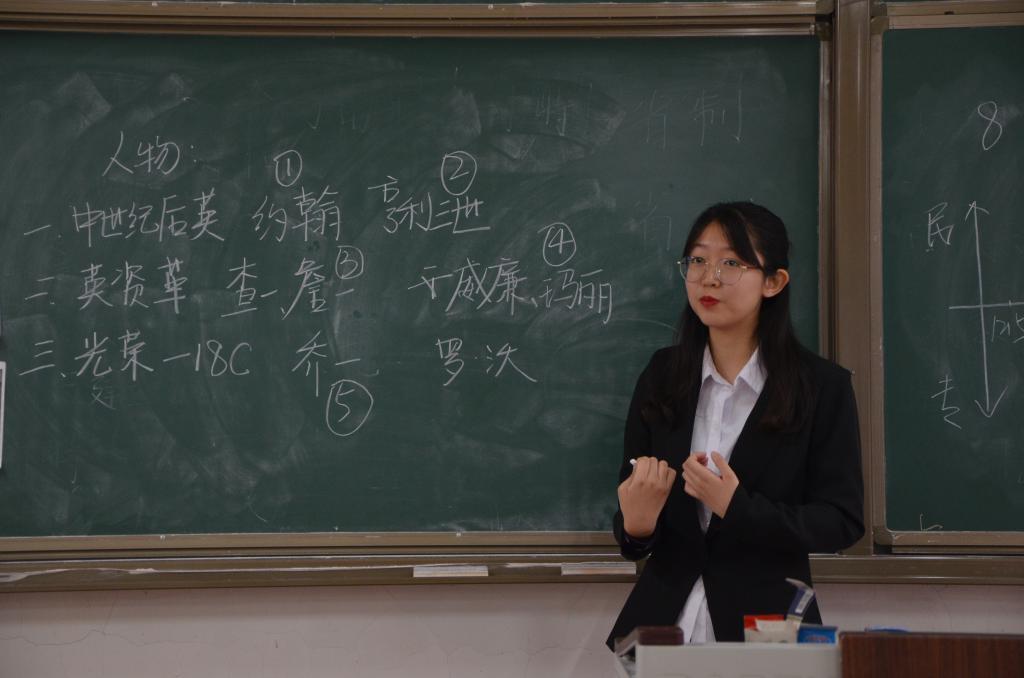 人物:
① ②
一. 中世纪后英 约翰 亨利三世
③ ④
二. 英资革 查一 詹一 威廉、玛丽
三. 光荣—18C 乔一 罗·沃
⑤
8
民
1215
专